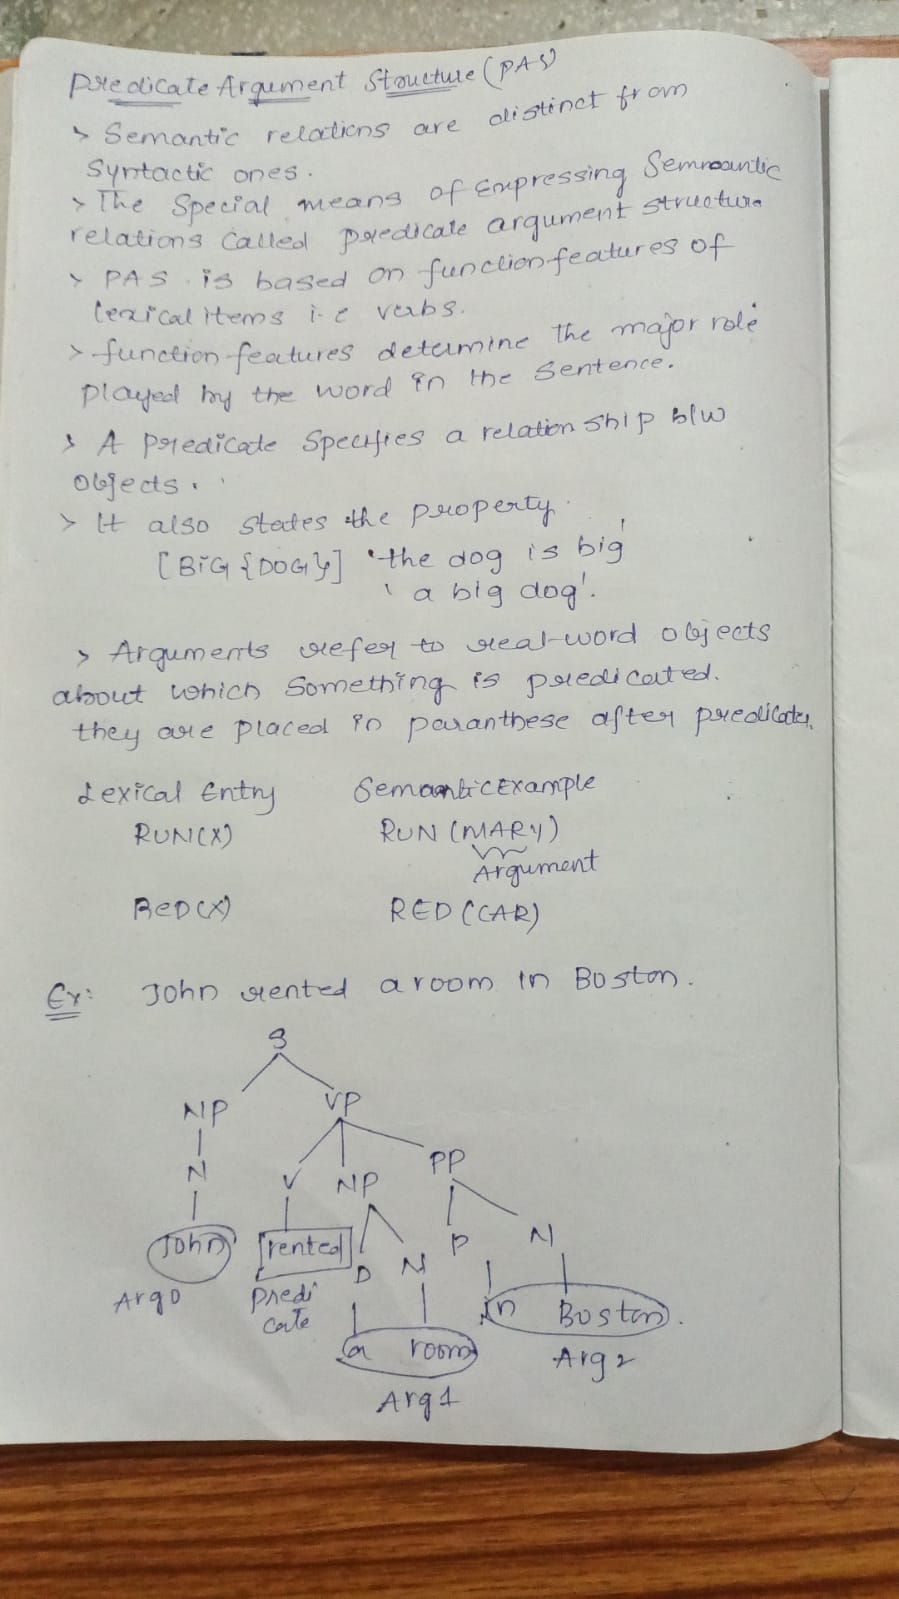 Predicate Argument Structure (PAS)
> Semantic relations are distinct from
Syntactic ones.
> The Special means of Expressing Semantic
relations Called predicate argument structure
> PAS is based on function features of
lexical items i.e verbs.
> function features determine the major role
played by the word in the Sentence.
> A predicate Specifies a relation ship b/w
Objects.
> It also states the property.
[BIG {DOG}] 'the dog is big'
'a big dog'.
> Arguments refer to real-word objects
about which Something is predicated.
they are placed in paranthese after predicates,
Lexical Entry Semantic Example
RUN(X) RUN (MARY)
Argument
RED(X) RED (CAR)
Ex: John rented a room in Boston.
S
NP VP
N V NP PP
John rented D N P N
Arg0 Predi
cate
a room in Boston.
Arg1 Arg2